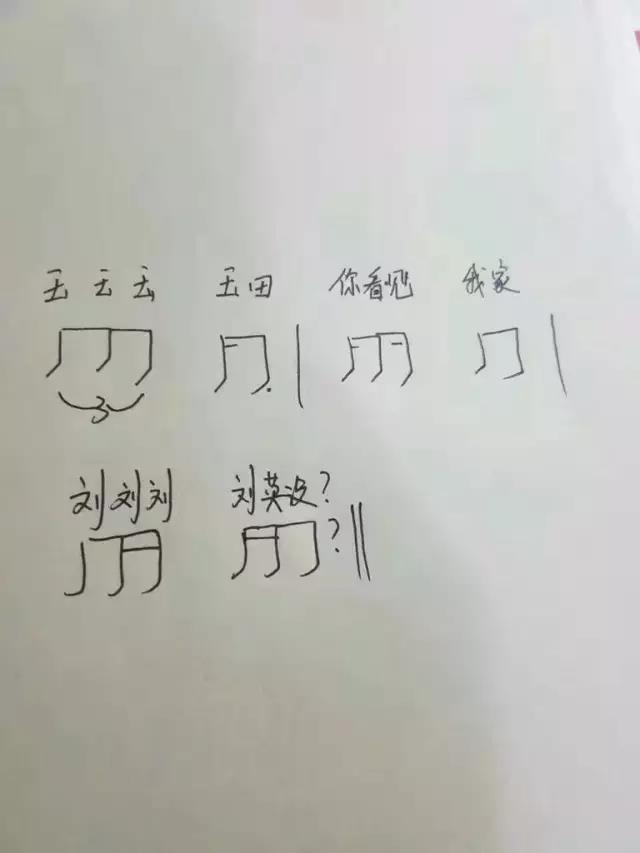 玉 玉 玉 玉田 你看见 我家
3
刘刘刘 刘英没?
?